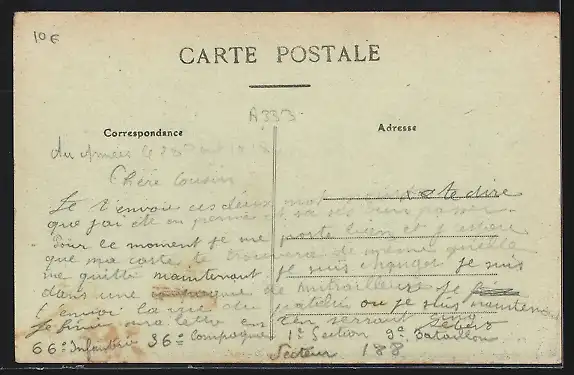 10€
CARTE POSTALE
A333
Correspondance
Adresse
Chère Cousin
Je t'envoie ces deux mot te dire
que j'ai été en perme et va bien
Pour ce moment je me porte bien et j'espère
que ma carte te trouvera de même quelle
me quitte maintenant je suis changer je suis
dans une de mitrailleurs je
t'envoi la vue du patelin ou je suis maintenent
Je fini ma lettre en ten serrant
66e Infantrie 36e Compagnie 1e Section 9e Bataillon
Secteur 188